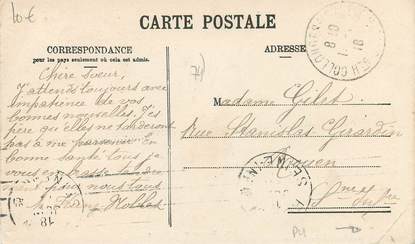 10€
CARTE POSTALE
CORRESPONDANCE
pour les pays seulement où cela est admis.
ADRESSE
Chère Sœur,
J'attends toujours avec
impatience de vos
bonnes nouvelles. J'es
père qu'elles ne tarderont
pas à me parvenir en
bonne santé tous je
vous embrasse
pour nous tous
74
Madame Gilet
Rue Stanislas Girardin
Rouen
Sne Infre